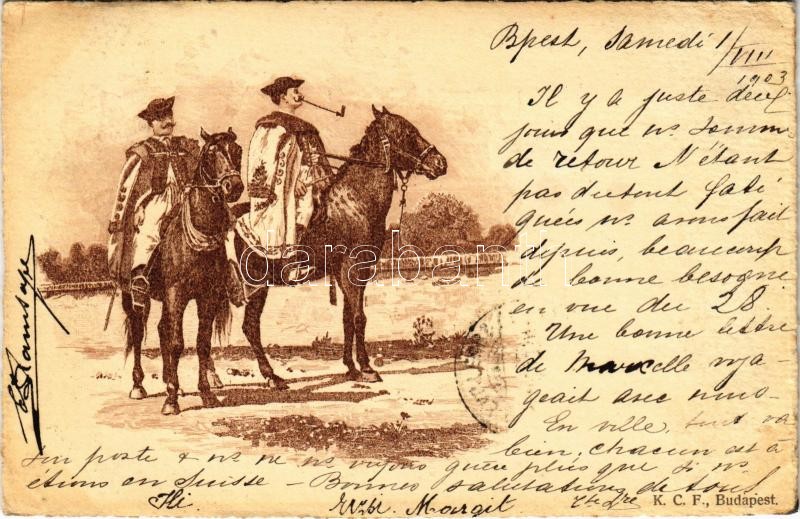 Bpest, Samedi 1/VIII
1903
Il y a juste deux
jours que ns. sommes
de retour N'étant
pas du tout fati
guées ns. avons fait
depuis, beaucoup
de bonne besogne
en vue du 28.
Une bonne lettre
de Marcelle voya
geait avec nous
En ville, tout va
bien, chacun est à
son poste & ns. ne ns. voyons guère plus que si ns.
étions en Suisse – Bonnes salutations de tous
Ili Rózsi Margit
darabanth.com
K. C. F., Budapest.